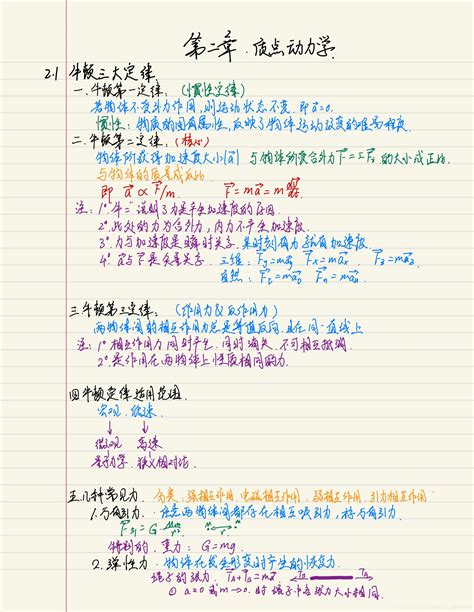 第二章 质点动力学
2.1 牛顿三大定律
一.牛顿第一定律: (惯性定律)
若物体不受外力作用,则运动状态不变.即a⃗=0.
惯性:物质的固有属性,反映了物体运动改变的难易程度.
二.牛顿第二定律: (核心)
物体所获得加速度大小|a⃗| 与物体所受合外力F⃗=ΣF⃗ᵢ的大小成正比.
与物体的质量成反比
即 a⃗ ∝ F⃗/m. F⃗=ma⃗=m dv⃗/dt
注: 1°.牛二说明了力是产生加速度的原因.
2°.此处的力为合外力,内力不产生加速度.
3°.力与加速度是瞬时关系.某时刻有力就有加速度.
4°.a⃗与F⃗是矢量关系.
三.牛顿第三定律: (作用力&反作用力)
两物体间的相互作用力总是等值反向.且在同一直线上
注: 1°.相互作用力同时产生.同时消失.不可相互抵消.
2°.是作用在两物体上性质相同的力.
四.牛顿定律适用范围.
宏观.低速.
↓ ↓
微观 高速
量子力学.狭义相对论.
五.几种常见力. 分类:强相互作用.电磁相互作用.弱相互作用.引力相互作用
1.万有引力. 任意两物体间都存在相互吸引力,称万有引力.
特别的,重力:G=mg.
2.弹性力. 物体在发生形变时产生的恢复力.
绳子的张力.
① a=0或m→0.时 绳子中各张力大小相同.